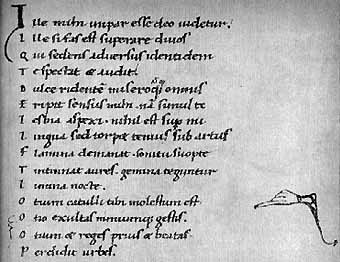 Ille mihi impar esse deo videtur.
Ille si fas est superare divos
Qui sedens adversus identidem
Te spectat & audit.
Dulce ridentem misero quod omnis
Eripit sensus mihi. nã simul te
Lesbia aspexi. nihil est sup mi
Lingua sed torpet tenuis sub artus
Flamina demanat. sonitu suopte
Tintinant aures. gemina teguntur
Lumina nocte.
Otium catulli tibi molestum est
Otio exultas nimiumque gestis.
Otium & reges prius & beatas
Perdidit urbes.